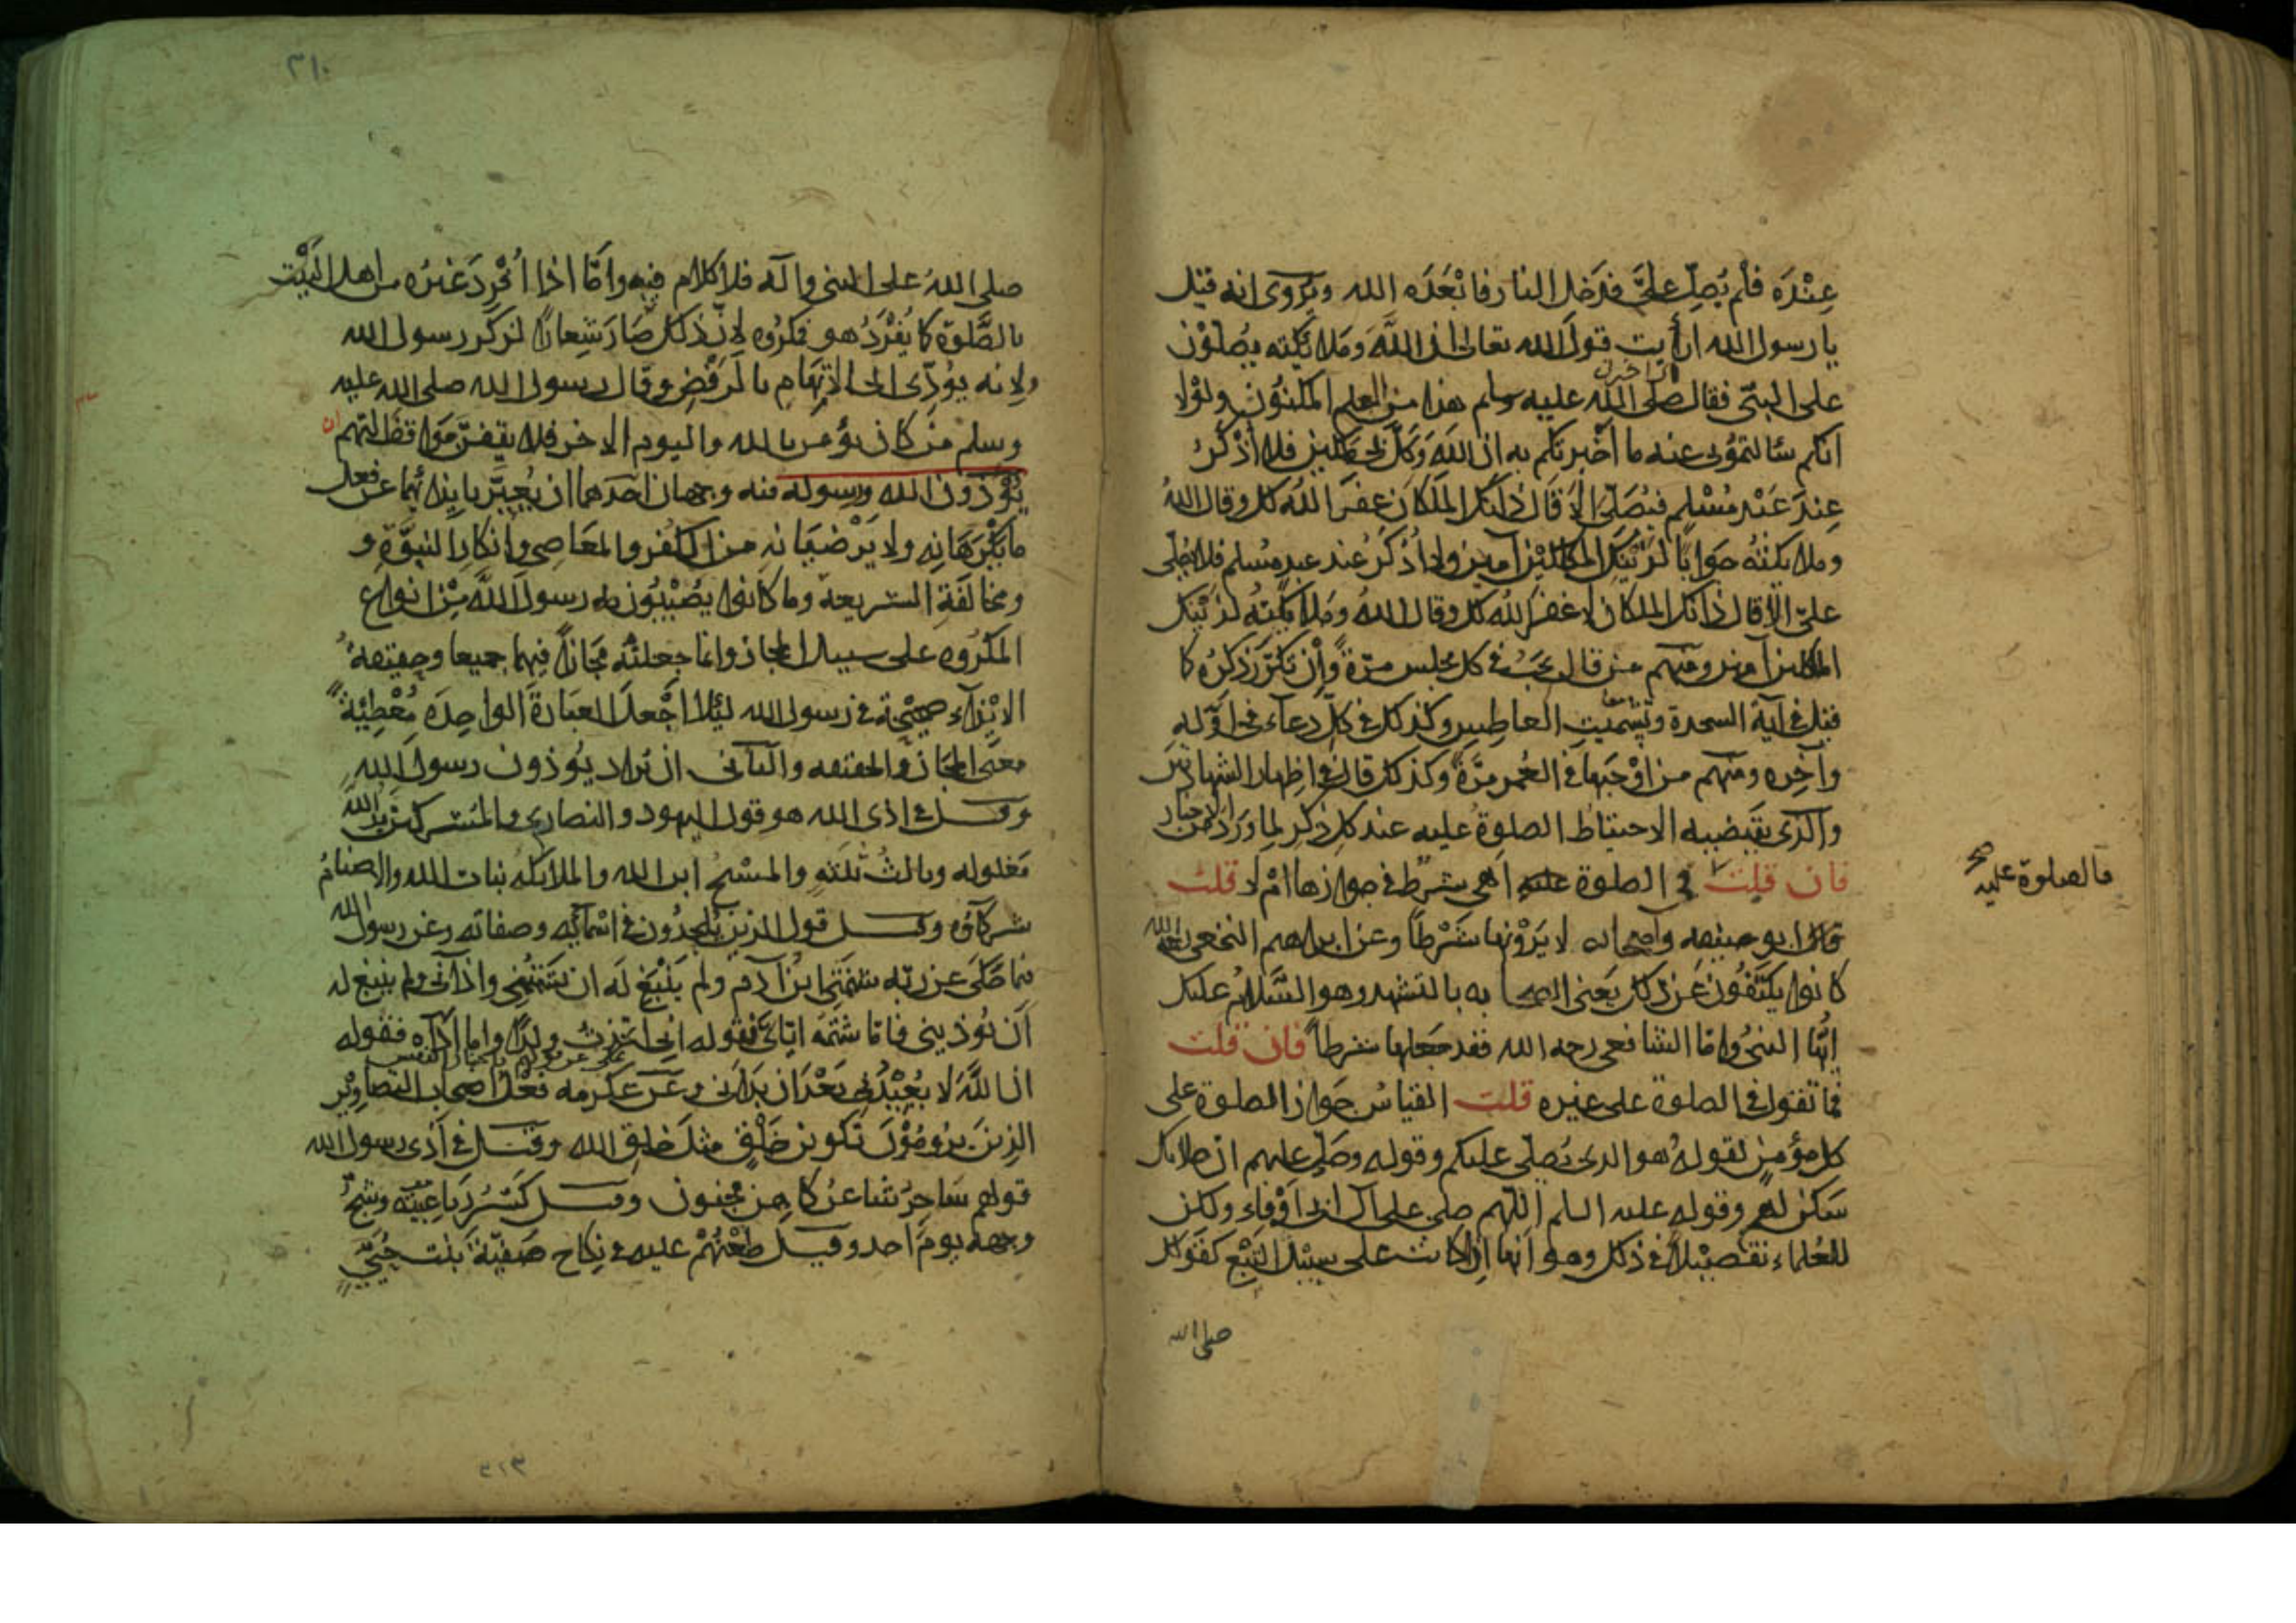 عنده فلم يصل علي فدخل النار فابعده الله ويروى انه قيل
يا رسول الله ارأيت قول الله تعالى ان الله وملائكته يصلون
على النبي فقال صلى الله عليه وسلم هذا من العلم المكنون ولولا
انكم سألتموني عنه ما اخبرتكم به ان الله وكل بي ملكين فلا اذكر
عند عبد مسلم فيصلي الا قال ذانك الملكان غفر الله لك وقال الله
وملائكته جوابا لذينك الملكين آمين ولا اذكر عند عبد مسلم فلا يصلي
علي الا قال ذانك الملكان لا غفر الله لك وقال الله وملائكته لذينك
الملكين آمين ومنهم من قال يجب في كل مجلس مرة وان تكرر ذكره كما
قيل في آية السجدة وتشميت العاطس وكذلك في كل دعاء في اوله
وآخره ومنهم من اوجبها في العمر مرة وكذلك قال في اظهار الشهادتين
والذي يقتضيه الاحتياط الصلوة عليه عند كل ذكر لما ورد من الاخبار
فان قلت في الصلوة عليه اهي شرط في جوازها ام لا قلت
فالصلوة عليه صح
قال ابو حنيفه واصحابه لا يرونها شرطا وعن ابراهيم النخعي رحمه الله
كانوا يكتفون عن ذلك يعني الصحابه بالتشهد وهو السلام عليك
ايها النبي واما الشافعي رحمه الله فقد جعلها شرطا فان قلت
فما تقول في الصلوة على غيره قلت القياس جواز الصلوة على
كل مؤمن لقوله هو الذي يصلي عليكم وقوله وصل عليهم ان صلاتك
سكن لهم وقوله عليه السلم اللهم صل على آل ابي اوفى ولكن
للعلماء تفصيلا في ذلك وهو انها ان كانت على سبيل التبع كقولك
صلى الله
٣١٠
صلى الله على النبي وآله فلا كلام فيه واما اذا افرد غيره من اهل البيت
بالصلوة كما يفرد هو فمكروه لان ذلك صار شعارا لذكر رسول الله
ولانه يؤدي الى الاتهام بالرفض وقال رسول الله صلى الله عليه
وسلم من كان يؤمن بالله واليوم الاخر فلا يقفن مواقف التهم ان
يؤذون الله ورسوله فيه وجهان احدهما ان يعبر بايذائهما عن فعل
ما يكرهانه ولا يرضيانه من الكفر والمعاصي وانكار النبوة و
ومخالفة الشريعة وما كانوا يصيبون به رسول الله من انواع
المكروه على سبيل المجاز وانما جعلته مجازا فيهما جميعا وحقيقة
الايذاء صحيحة في رسول الله لئلا اجعل العبارة الواحدة معطية
معنى المجاز والحقيقه والثاني ان يراد يؤذون رسول الله
وقيل في اذى الله هو قول اليهود والنصارى والمشركين يد الله
مغلوله وثالث ثلثة والمسيح ابن الله والملائكه بنات الله والاصنام
شركاؤه وقيل قول الذين يلحدون في اسمائه وصفاته وعن رسول الله
فيما حكى عن ربه شتمني ابن آدم ولم ينبغ له ان يشتمني وآذاني ولم ينبغ له
ان يؤذيني فاما شتمه اياي فقوله اني اتخذت ولدا واما اذاه فقوله
ان الله لا يعيدني بعد ان بدأني وعن عكرمه فعل اصحاب التصاوير
الذين يرومون تكوين خلق مثل خلق الله وقيل في اذى رسول الله
قولهم ساحر شاعر كاهن مجنون وقيل كسر رباعيته وشج
وجهه يوم احد وقيل طعنهم عليه في نكاح صفية بنت حيي